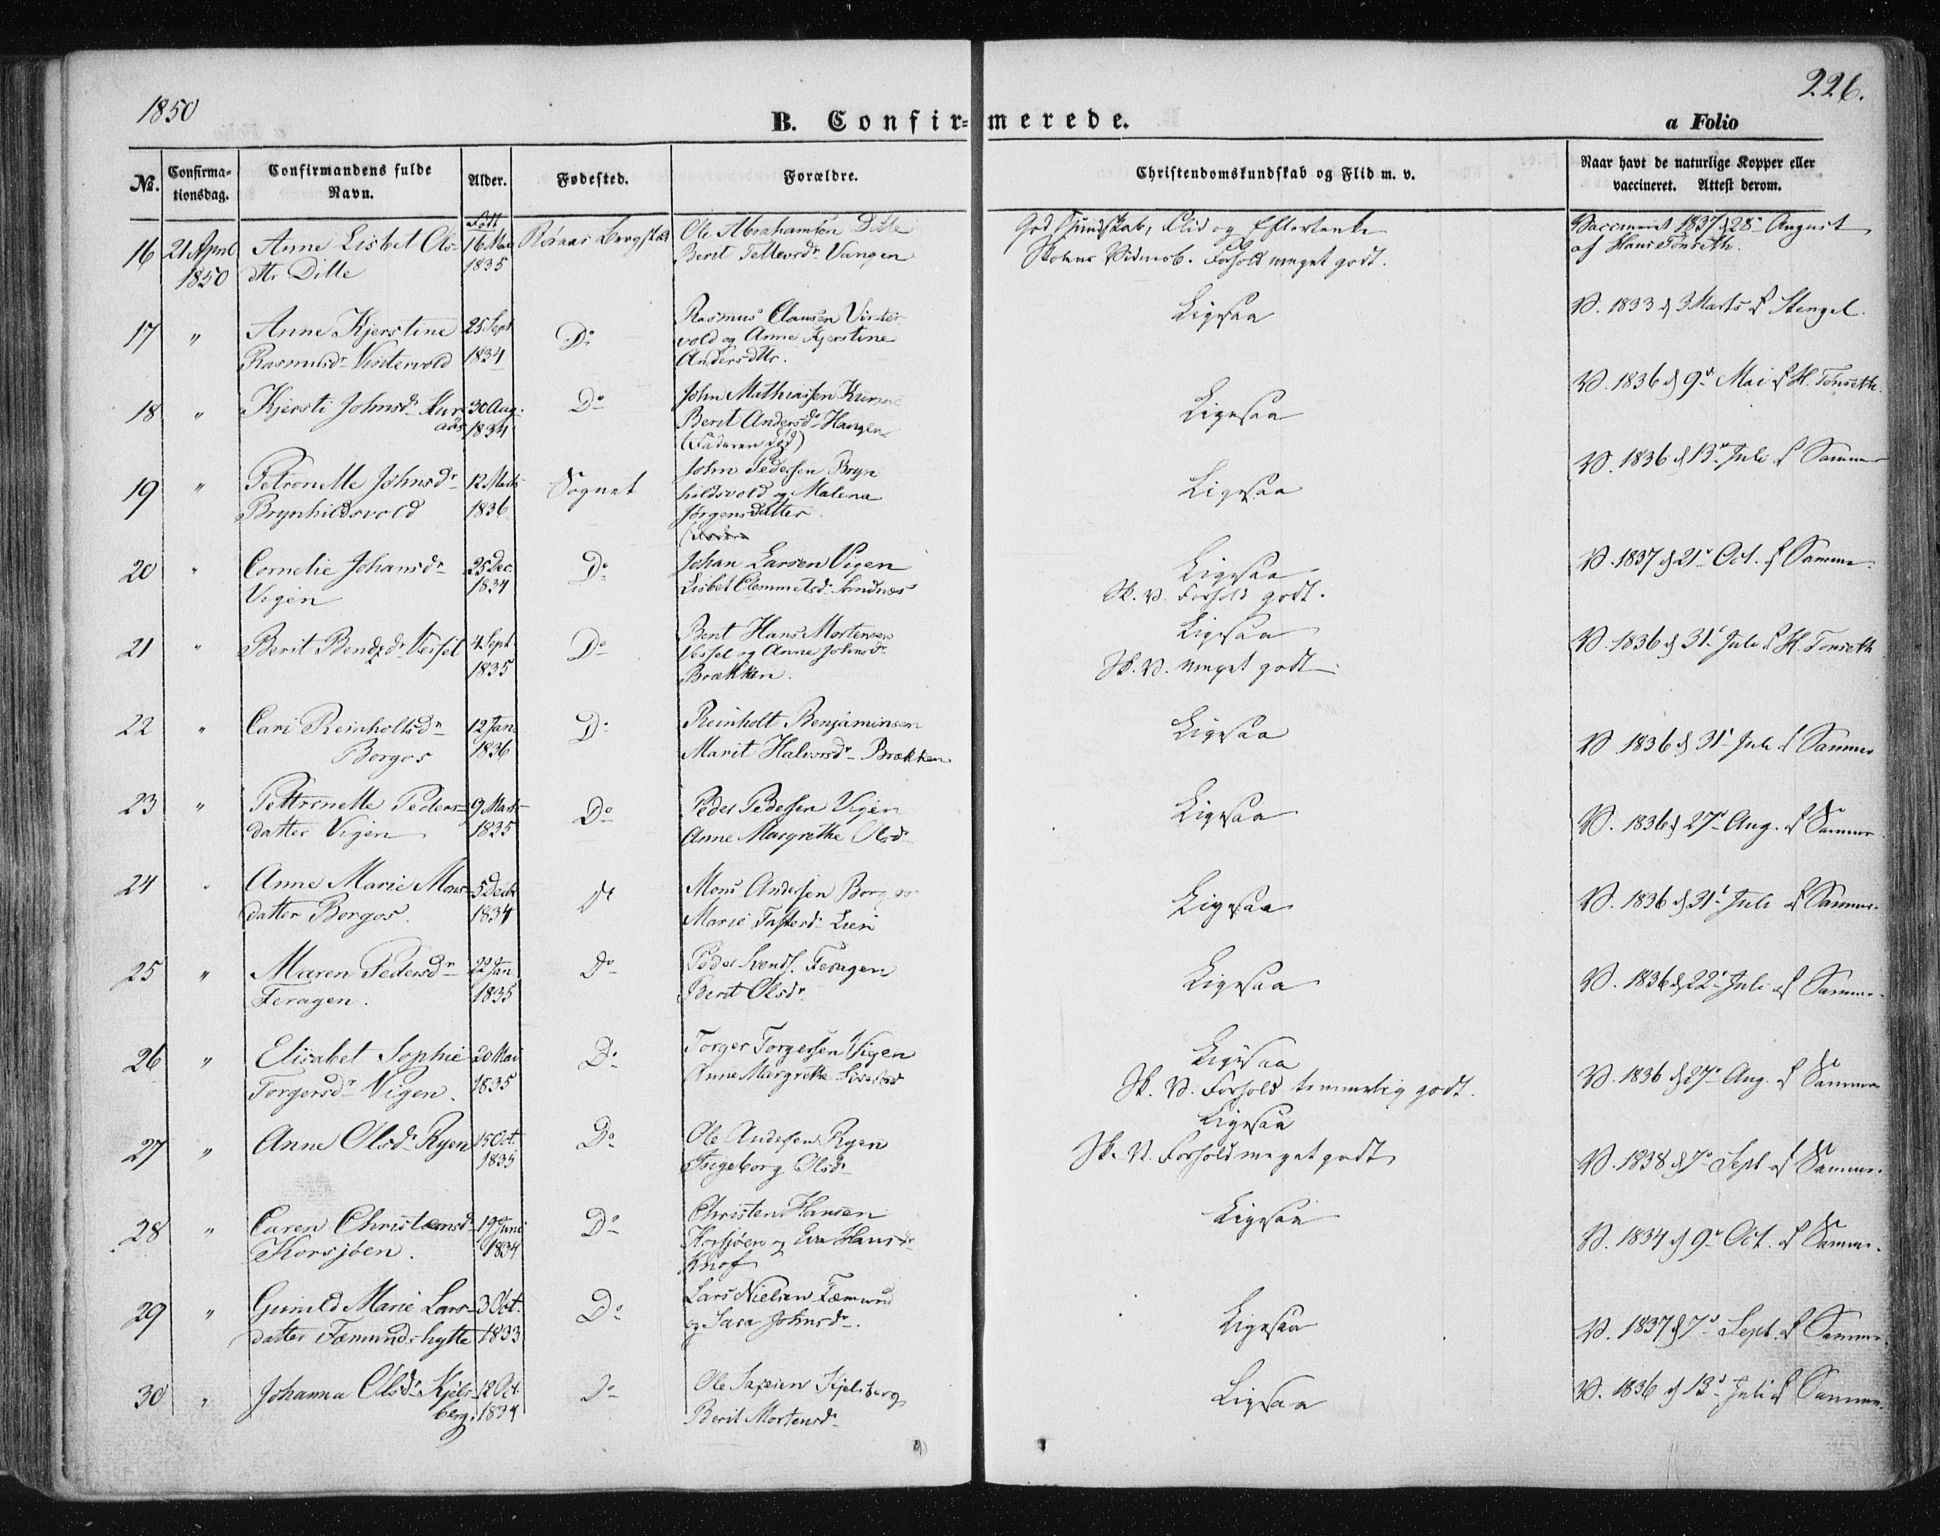 1850
226.
B. Confir=merede.
a Folio
No.
Confirma-
tionsdag.
Confirmandens fulde
Navn.
Alder.
Fødested.
Forældre.
Christendomskundskab og Flid m. v.
Naar havt de naturlige Kopper eller
vaccineret. Attest derom.
16 21 April 1850
Anne Lisbet Ols-
dtr Ditte
Født
16 Mai
1835
Røraas Bergstad
Ole Abrahamsen Ditte
Berit Vangen
God Kundskab, Flid og Eftertanke
Skolens Vidnesb. Forhold meget godt.
Vaccineret 1837 d 28de August
af Hans Tønseth.
17 "
Anne Kjerstine
Rasmusdr Vintervold
25 Sept
1834
Do
Rasmus Clausen Vinter
vold og Anne Kjerstine
Andersdtr.
Ligesaa
V. 1833 d 3 Marts af Stengel.
18 "
Kjersti Johnsdr Aur
aas
30 Aug.
1834
Do
John Mathiassen
Berit Andersdr Haugen
(Faderen død)
Ligesaa
V. 1836 d 9de Mai af H. Tønseth.
19 "
Petronelle Johnsdr
Brynhildsvold
12 Marts
1836
Sognet
John Pedersen Bryn
hildsvold og Malena
Jørgensdatter
Ligesaa
V. 1836 d 13de Juli af Samme
20 "
Cornelie Johansdr
Vigen
25 Dec
1834
Do
Johan Larsen Vigen
Lisbet Clemmetsdr Sundnæs
Ligesaa
Sk. V. Forhold godt.
V. 1837 d 21de Oct. af Samme.
21 "
Berit Bendzdr Vessel
4 Sept
1835
Do
Bent Hans Mortensen
Vessel og Anne Johnsdr
Brækken.
Ligesaa
Sk. V. meget godt.
V. 1836 d 31te Juli af H. Tønseth
22 "
Cari Reinholtsdr
Borgos
12 Jan
1836
Do
Reinholt Benjaminsen
Marit Halvorsdr Brækken
Ligesaa
V. 1836 d 31te Juli af Samme
23 "
Pettronelle Peders-
datter Vigen
9 Marts
1835
Do
Peder Pedersen Vigen
Anne Margrethe Olsdr
Ligesaa
V. 1836 d 27de Aug. af Samme
24 "
Anne Marie Mons-
datter Borgos.
5 Decbr
1834
Do
Mons Andersen Borgos
Marie Lien
Ligesaa
V. 1836 d 31te Juli af Samme.
25 "
Maren Pedersdr
Feragen.
22 Jan
1835
Do
Peder Svends. Feragen
Berit Olsdr
Ligesaa
V. 1836 d 22de Juli af Samme.
26 "
Elisabet Sophie
Torgersdr Vigen.
20 Mai
1835
Do
Torger Torgersen Vigen
Anne Margrethe
Ligesaa
Sk. V. Forhold temmelig godt.
V. 1836 d 27de Aug. af Samme
27 "
Anne Olsdr Ryen
15 Oct.
1835
Do
Ole Andersen Ryen
Ingeborg Olsdr
Ligesaa
Sk. V. Forhold meget godt
V. 1838 d 7de Sept af Samme.
28 "
Caren Christensdr
Korsjøen.
19 Juni
1834
Do
Christen Hansen
Korsjøen og Eva Hansdr
Knof
Ligesaa
V. 1834 d 9de Oct. af Samme.
29 "
Gunild Marie Lars-
datter Fæmundshytte
3 Oct.
1833
Do
Lars Nielsen Fæmund
og Sara Johnsdr.
Ligesaa
V. 1837 d 7de Sept. af Samme.
30 "
Johanna Olsdr Kjels-
berg.
12 Oct
1834
Do
Ole Kjelsberg
Berit Mortensdr
Ligesaa
V. 1836 d 13de Juli af Samme.